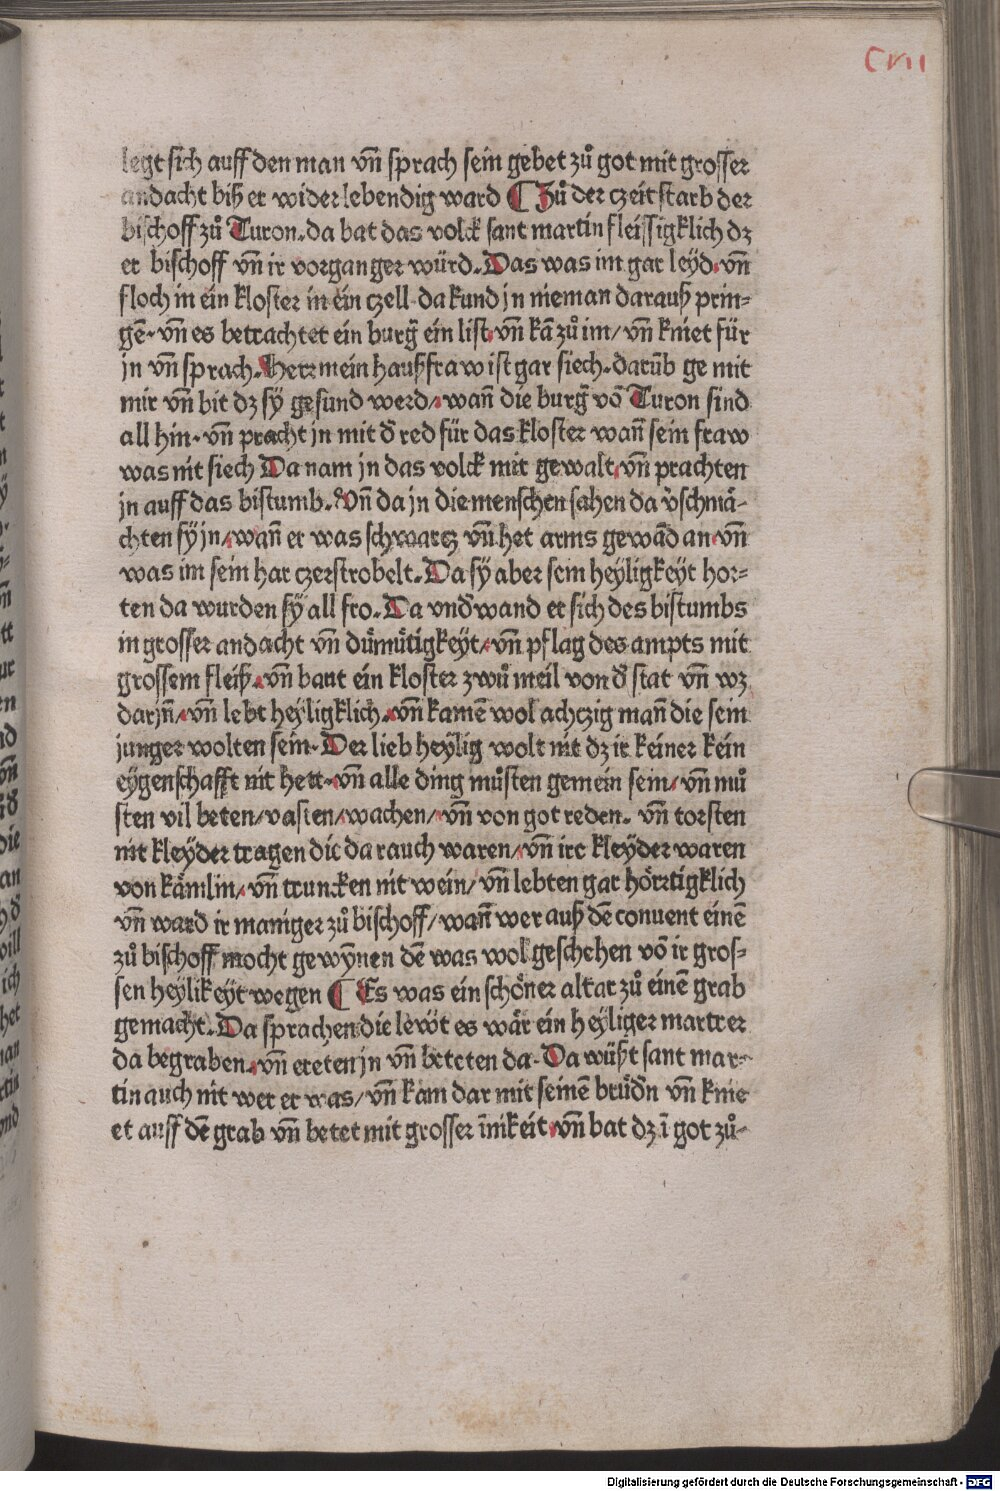 Cvii
legt sich auff den man vñ sprach sein gebet zů got mit grosser
andacht biß er wider lebendig ward ¶ Zů der czeit starb der
bischoff zů Turon. da bat das volck sant martin fleissigklich dz
er bischoff vñ ir vorganger würd. Das was im gar leyd. vñ
floch in ein kloster in ein czell. da kund jn nieman darauß prin⸗
gē. vñ es betrachtet ein burg̃ ein list. vñ kā zů im/ vñ kniet für
jn vñ sprach. Herr mein haußfraw ist gar siech. darūb ge mit
mir vñ bit dz sÿ gesund werd/ wañ die burg̃ vō Turon sind
all hin. vñ pracht jn mit d̄ red für das kloster wañ sein fraw
was nit siech Da nam jn das volck mit gewalt. vñ prachten
jn auff das bistumb. Vñ da jn die menschen sahen da v̄schmä⸗
chten sÿ jn/ wañ er was schwartz vñ het arms gewād an. vñ
was im sein har czerstrobelt. Da sÿ aber sein heÿligkeÿt hor⸗
ten da wurden sÿ all fro. Da vnd̄wand er sich des bistumbs
in grosser andacht vñ důmůtigkeÿt/ vñ pflag des ampts mit
grossem fleiß. vñ baut ein kloster zwů meil von d̄ stat vñ wz
darjñ/ vñ lebt heÿligklich. vñ kamē wol achczig mañ die sein
junger wolten sein. Der lieb heÿlig wolt nit dz ir keiner kein
eÿgenschafft nit hett. vñ alle ding můsten gemein sein/ vñ mů
sten vil beten/ vasten/ wachen/ vñ von got reden. vñ torsten
nit kleÿder tragen die da rauch waren/ vñ ire kleÿder waren
von kämlin/ vñ truncken nit wein/ vñ lebten gar hörtigklich
vñ ward ir maniger zů bischoff/ wañ wer auß dē conuent einē
zů bischoff mocht gewÿnen dē was wol geschehen vō ir gros⸗
sen heÿlikeÿt wegen ¶ Es was ein schöner altar zů einē grab
gemacht. Da sprachen die lewt es wär ein heÿliger martrer
da begraben. vñ ereten jn vñ beteten da. Da wüßt sant mar⸗
tin auch nit wer er was/ vñ kam dar mit seinē brůdn̄ vñ knie
et auff dē grab vñ betet mit grosser īnikeit. vñ bat dz ī got zů⸗
Digitalisierung gefördert durch die Deutsche Forschungsgemeinschaft - DFG